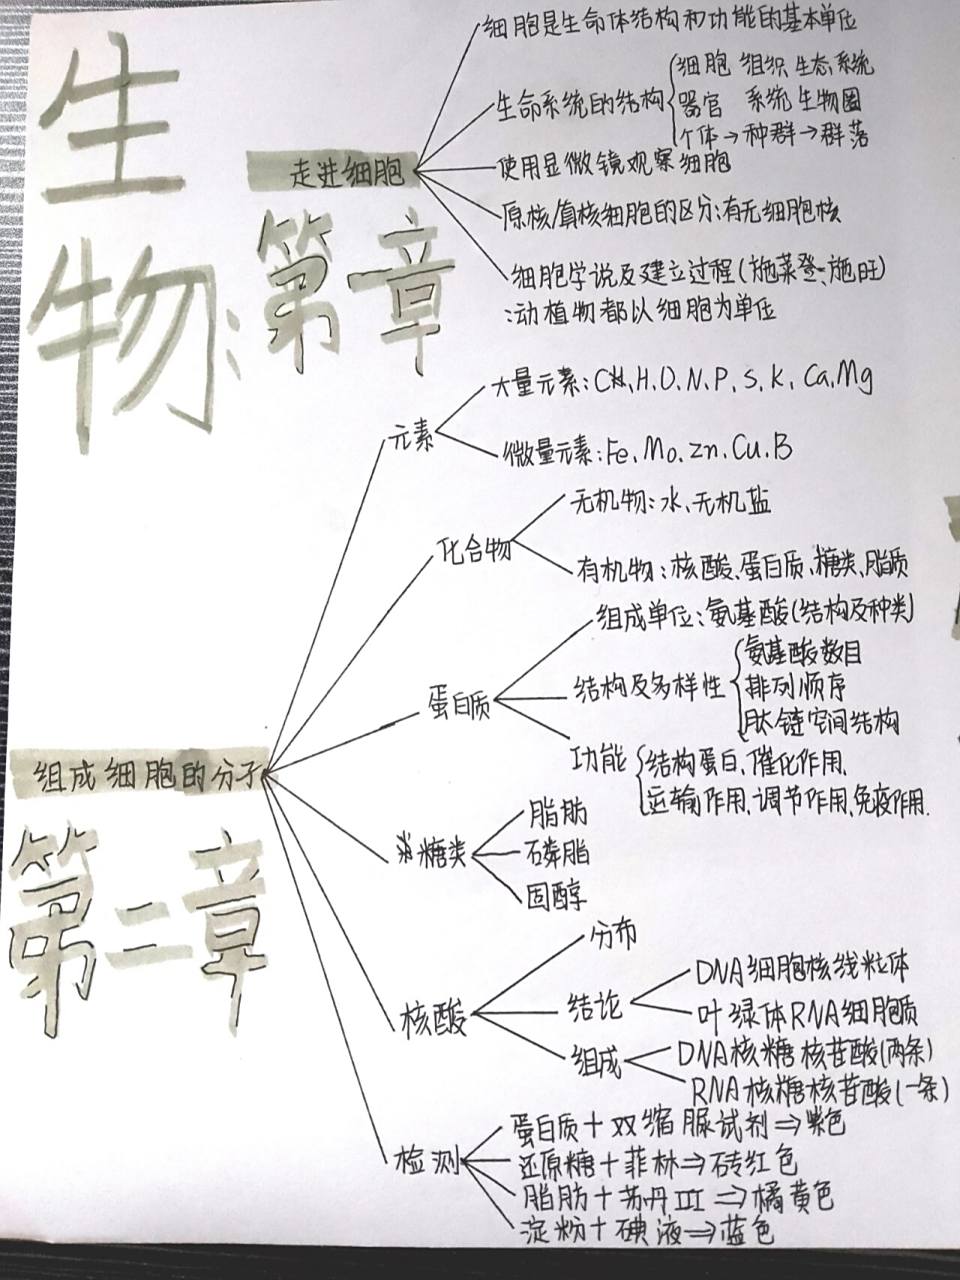 生物:
第一章
走进细胞
细胞是生命体结构和功能的基本单位
生命系统的结构
细胞 组织 生态系统
器官 系统 生物圈
个体→种群→群落
使用显微镜观察细胞
原核/真核细胞的区分:有无细胞核
细胞学说及建立过程(施莱登、施旺)
:动植物都以细胞为单位
第二章
组成细胞的分子
元素
大量元素:C、H、O、N、P、S、K、Ca、Mg
微量元素:Fe、Mo、Zn、Cu、B
化合物
无机物:水、无机盐
有机物:核酸、蛋白质、糖类、脂质
蛋白质
组成单位:氨基酸(结构及种类)
结构及多样性
氨基酸数目
排列顺序
肽链空间结构
功能
结构蛋白、催化作用、
运输作用、调节作用、免疫作用.
糖类
脂肪
磷脂
固醇
核酸
分布
结论
DNA细胞核线粒体
叶绿体RNA细胞质
组成
DNA核糖核苷酸(两条)
RNA核糖核苷酸(一条)
检测
蛋白质+双缩脲试剂⇒紫色
还原糖+菲林⇒砖红色
脂肪+苏丹III⇒橘黄色
淀粉+碘液⇒蓝色